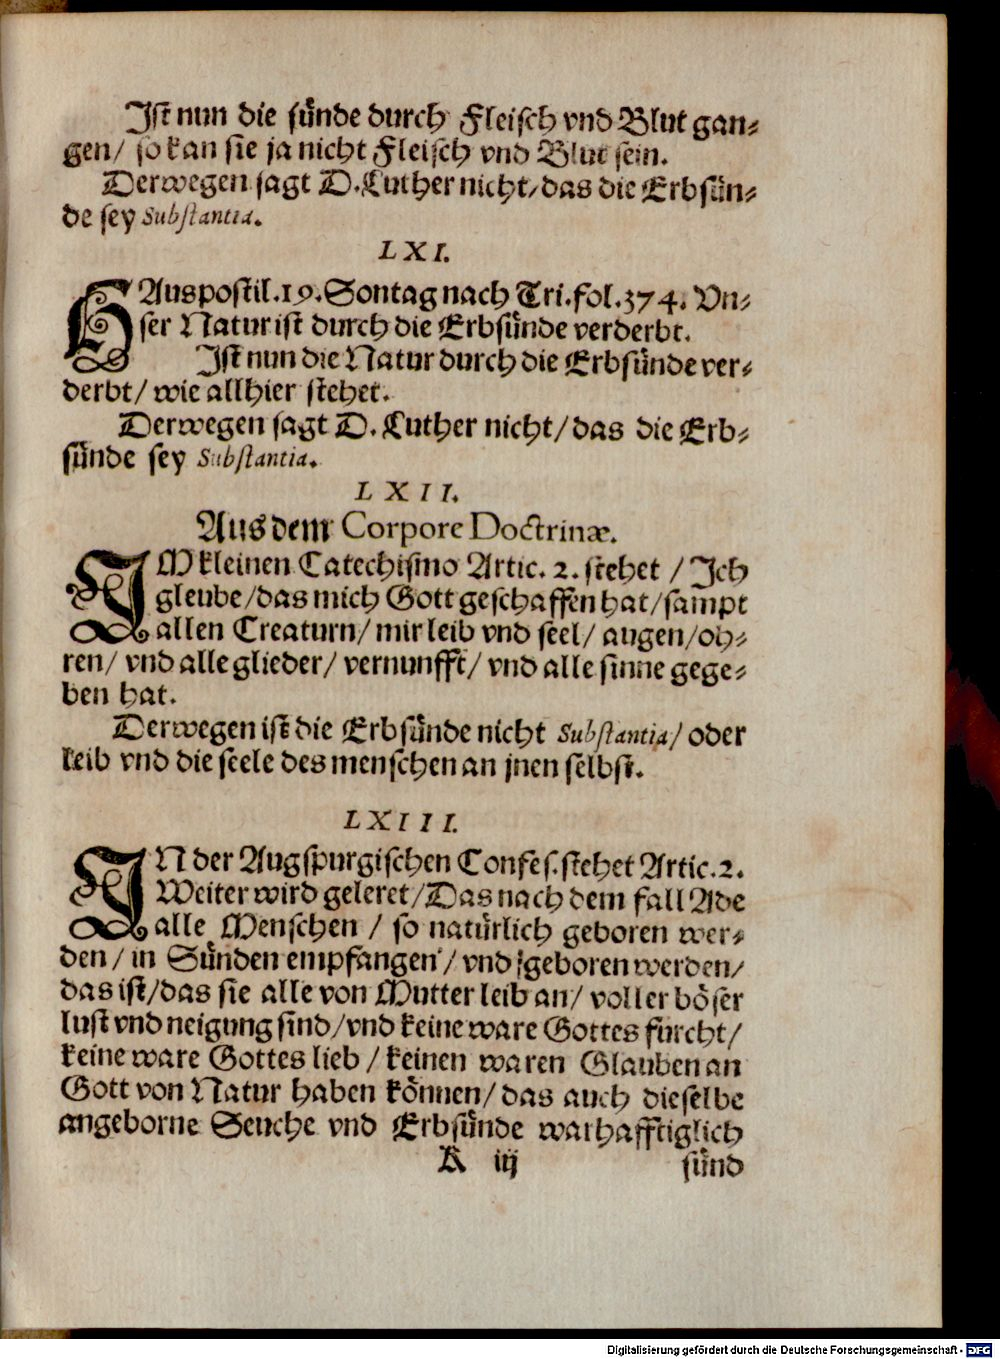 Ist nun die sünde durch Fleisch vnd Blut gan-
gen/ so kan sie ja nicht Fleisch vnd Blut sein.
Derwegen sagt D. Luther nicht/ das die Erbsün-
de sey Substantia.
LXI.
HAuspostil. 19. Sontag nach Tri. fol. 374. Vn-
ser Natur ist durch die Erbsünde verderbt.
Ist nun die Natur durch die Erbsünde ver-
derbt/ wie allhier stehet.
Derwegen sagt D. Luther nicht/ das die Erb-
sünde sey Substantia.
LXII.
Aus dem Corpore Doctrinæ.
IM kleinen Catechismo Artic. 2. stehet / Ich
gleube/ das mich Gott geschaffen hat/ sampt
allen Creaturn/ mir leib vnd seel/ augen/ oh-
ren/ vnd alle glieder/ vernunfft/ vnd alle sinne gege-
ben hat.
Derwegen ist die Erbsünde nicht Substantia/ oder
leib vnd die seele des menschen an jnen selbst.
LXIII.
IN der Augspurgischen Confes. stehet Artic. 2.
Weiter wird geleret/ Das nach dem fall Ade
alle Menschen / so natürlich geboren wer-
den/ in Sünden empfangen/ vnd geboren werden/
das ist/ das sie alle von Mutter leib an/ voller böser
lust vnd neigung sind/ vnd keine ware Gottes furcht/
keine ware Gottes lieb / keinen waren Glauben an
Gott von Natur haben können/ das auch dieselbe
angeborne Seuche vnd Erbsünde warhafftiglich
K iij sünd
Digitalisierung gefördert durch die Deutsche Forschungsgemeinschaft - DFG